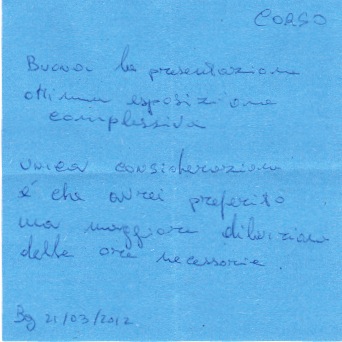 CORSO
Buona la presentazione
ottima esposizione
complessiva
unica considerazione
è che avrei preferito
una maggiore diluizione
delle ore necessarie.
Bg 21/03/2012